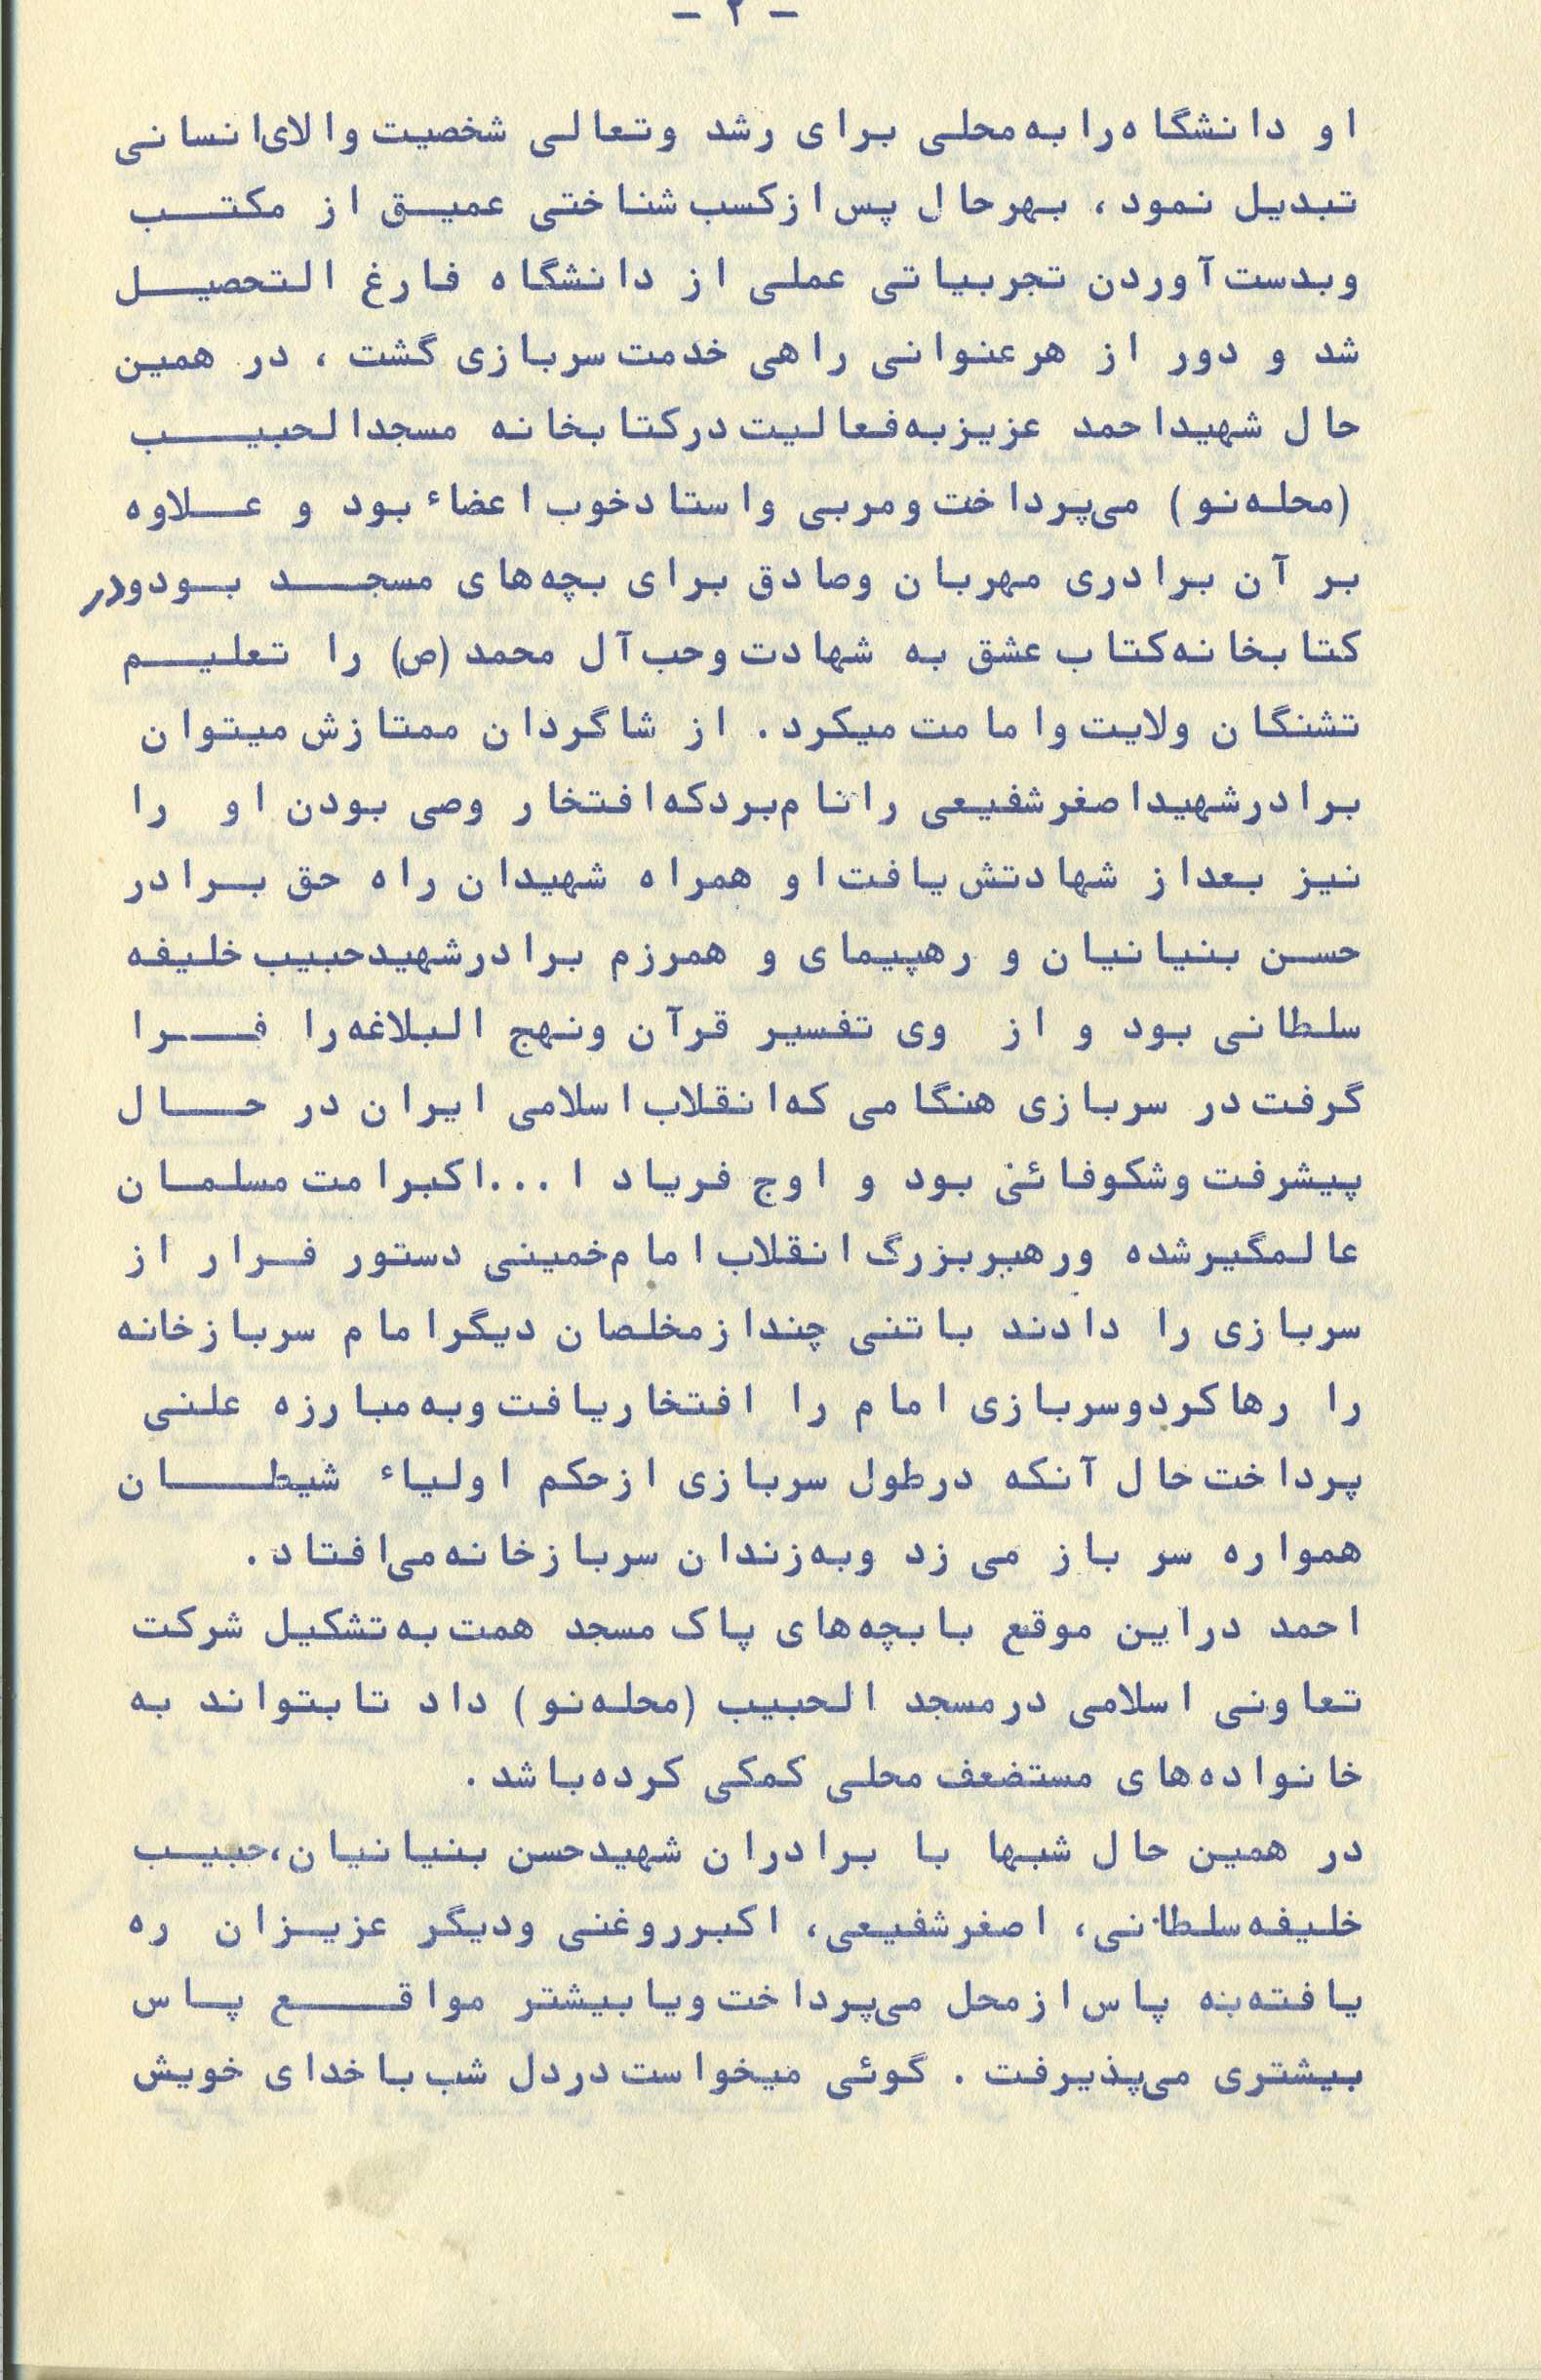 - ۲ -
او دانشگاه را به محلی برای رشد وتعالی شخصیت والای انسانی
تبدیل نمود، بهرحال پس از کسب شناختی عمیق از مکتب
وبدست آوردن تجربیاتی عملی از دانشگاه فارغ التحصیل
شد و دور از هرعنوانی راهی خدمت سربازی گشت، در همین
حال شهید احمد عزیز به فعالیت در کتابخانه مسجدالحبیب
(محله نو) می‌پرداخت و مربی واستاد خوب اعضاء بود و علاوه
بر آن برادری مهربان وصادق برای بچه‌های مسجد بود و در
کتابخانه کتاب عشق به شهادت وحب آل محمد (ص) را تعلیم
تشنگان ولایت وامامت میکرد. از شاگردان ممتازش میتوان
برادر شهید اصغر شفیعی را نام برد که افتخار وصی بودن او را
نیز بعد از شهادتش یافت او همراه شهیدان راه حق برادر
حسن بنیانیان و رهپیمای و همرزم برادر شهید حبیب خلیفه
سلطانی بود و از وی تفسیر قرآن ونهج البلاغه را فرا
گرفت در سربازی هنگامی که انقلاب اسلامی ایران در حال
پیشرفت وشکوفائی بود و اوج فریاد ا...اکبر امت مسلمان
عالمگیر شده ورهبر بزرگ انقلاب امام خمینی دستور فرار از
سربازی را دادند باتنی چند از مخلصان دیگر امام سربازخانه
را رها کرد و سربازی امام را افتخار یافت وبه مبارزه علنی
پرداخت حال آنکه درطول سربازی ازحکم اولیاء شیطان
همواره سر باز می زد وبه زندان سربازخانه می‌افتاد.
احمد دراین موقع با بچه‌های پاک مسجد همت به تشکیل شرکت
تعاونی اسلامی درمسجد الحبیب (محله نو) داد تا بتواند به
خانواده‌های مستضعف محلی کمکی کرده باشد.
در همین حال شبها با برادران شهید حسن بنیانیان، حبیب
خلیفه سلطانی، اصغر شفیعی، اکبر روغنی ودیگر عزیزان ره
یافته به پاس از محل می‌پرداخت ویا بیشتر مواقع پاس
بیشتری می‌پذیرفت. گوئی میخواست دردل شب با خدای خویش